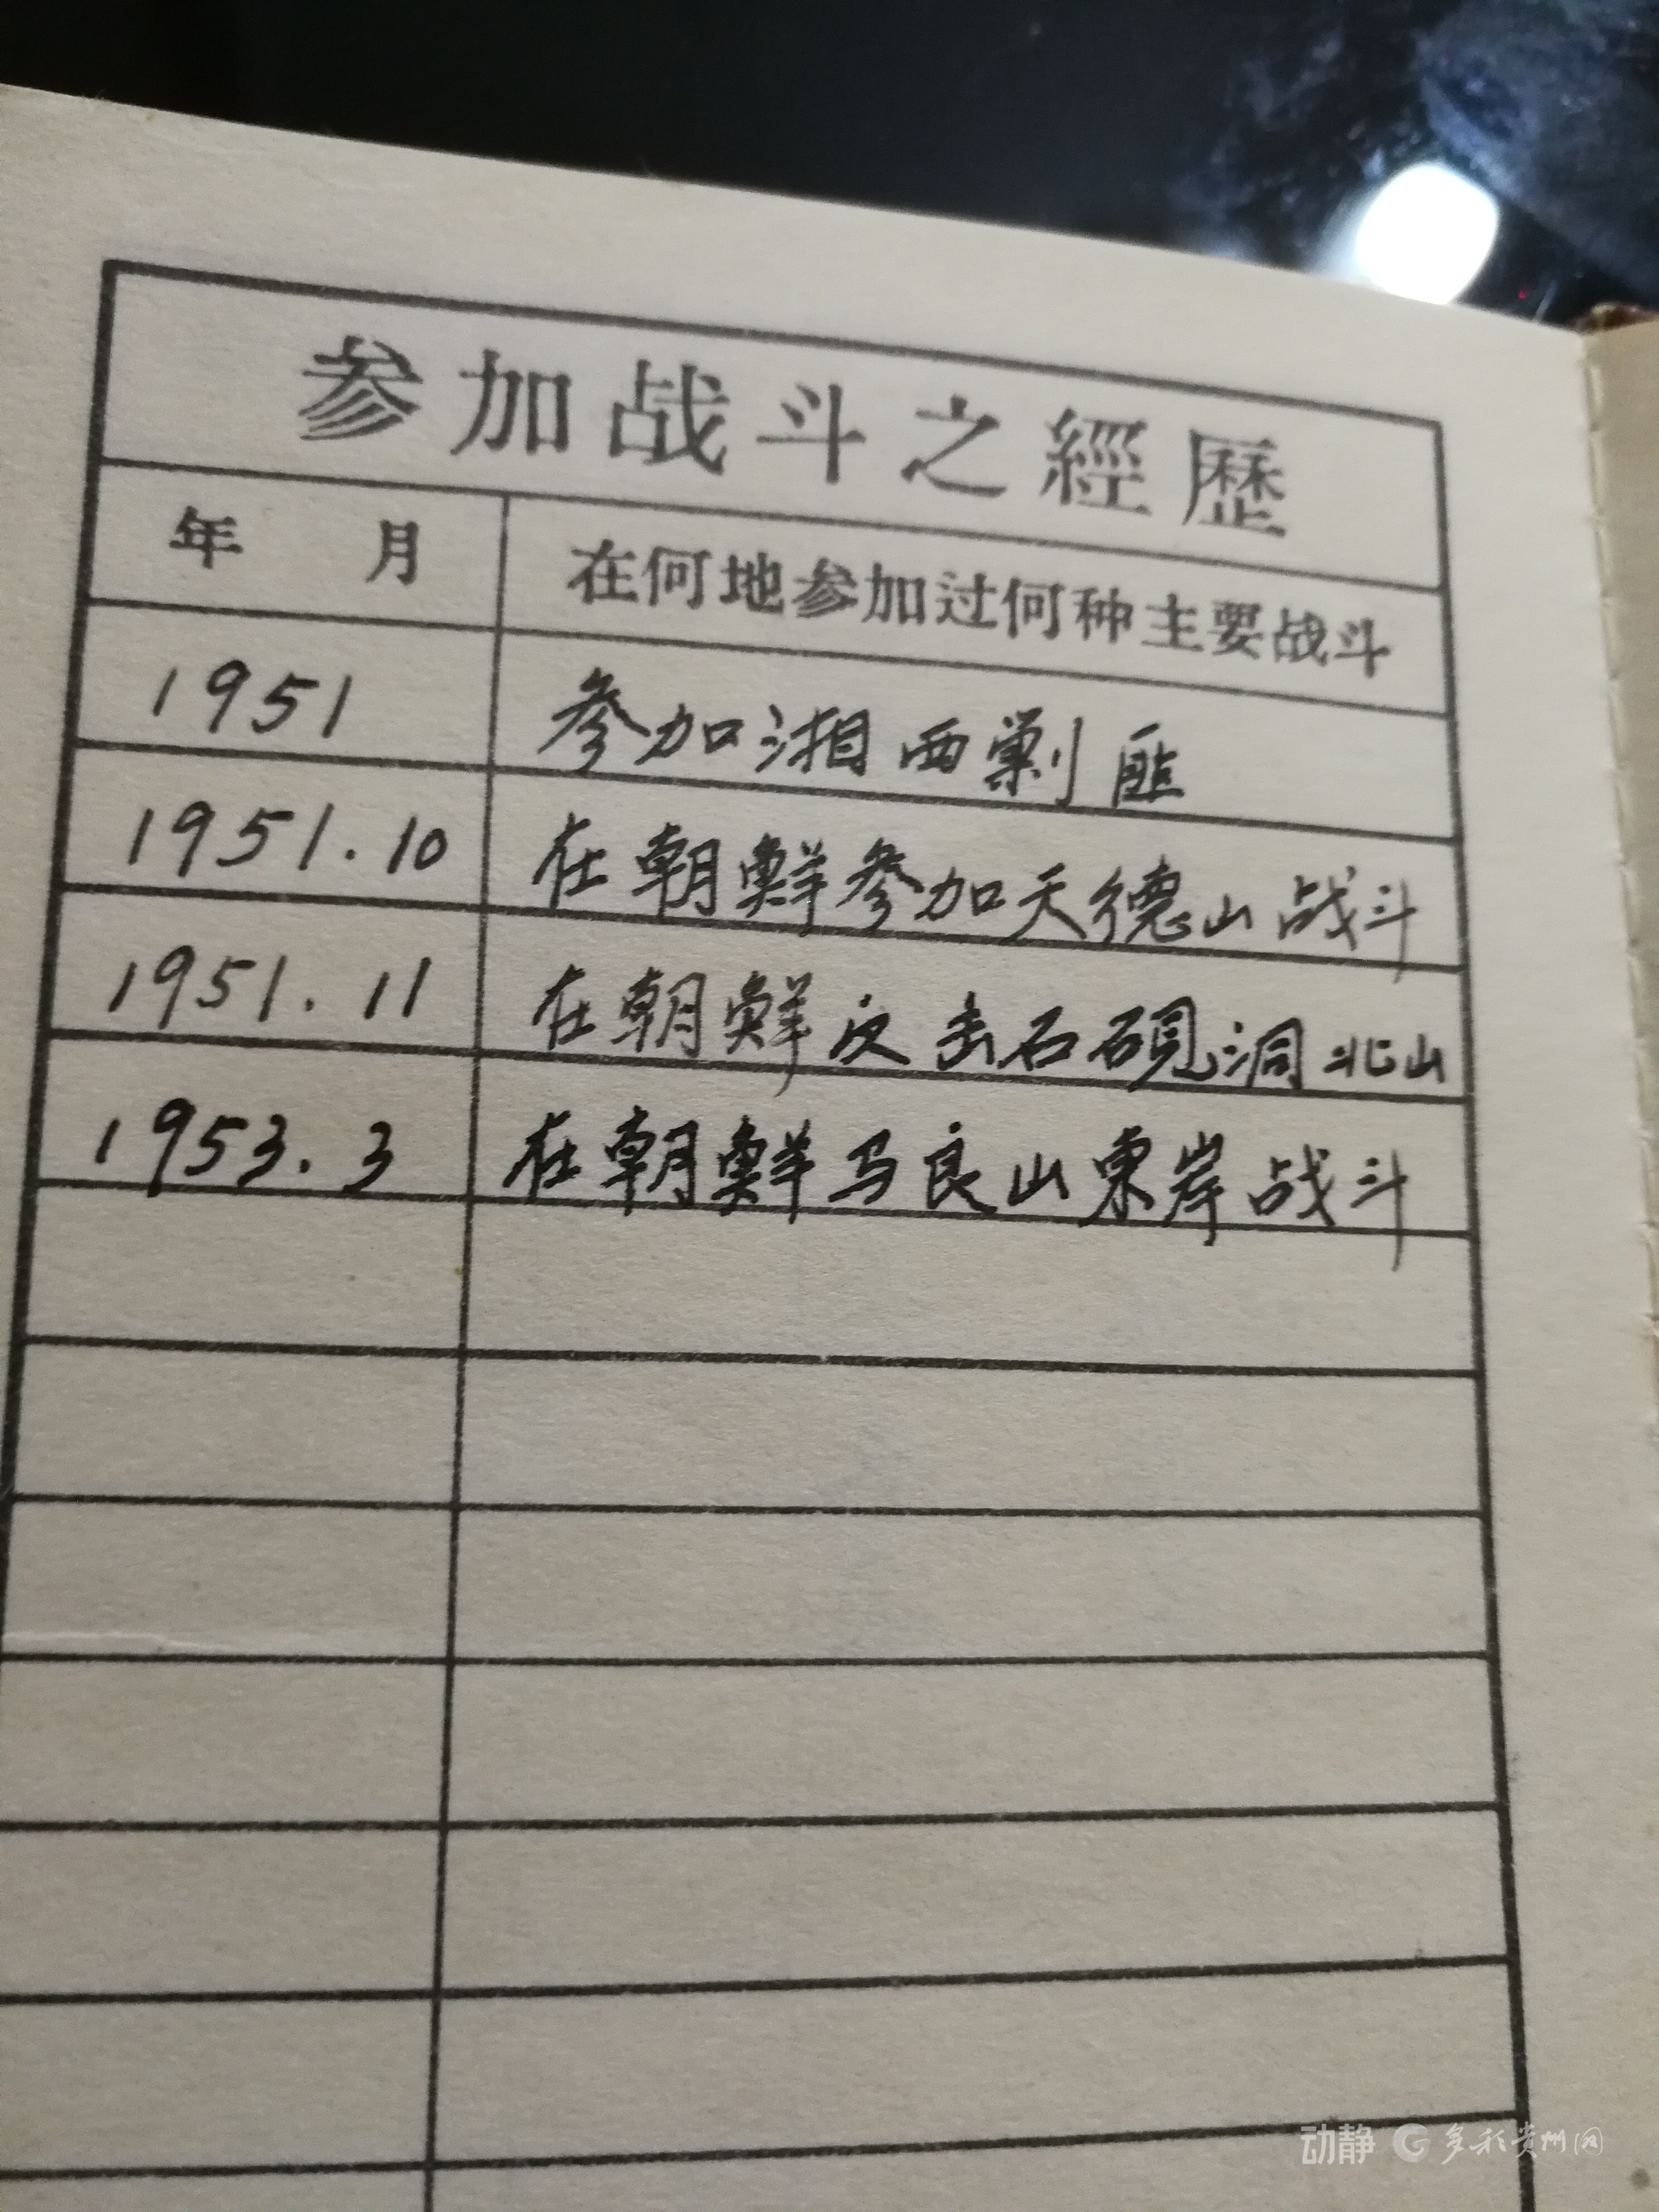 参加战斗之經歷
年 月 在何地参加过何种主要战斗
1951 参加湘西剿匪
1951.10 在朝鲜参加天德山战斗
1951.11 在朝鲜反击石砚洞北山
1953.3 在朝鲜马良山東岸战斗
动静 多彩贵州网